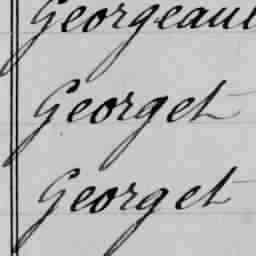 Georgeau
Georget
Georget